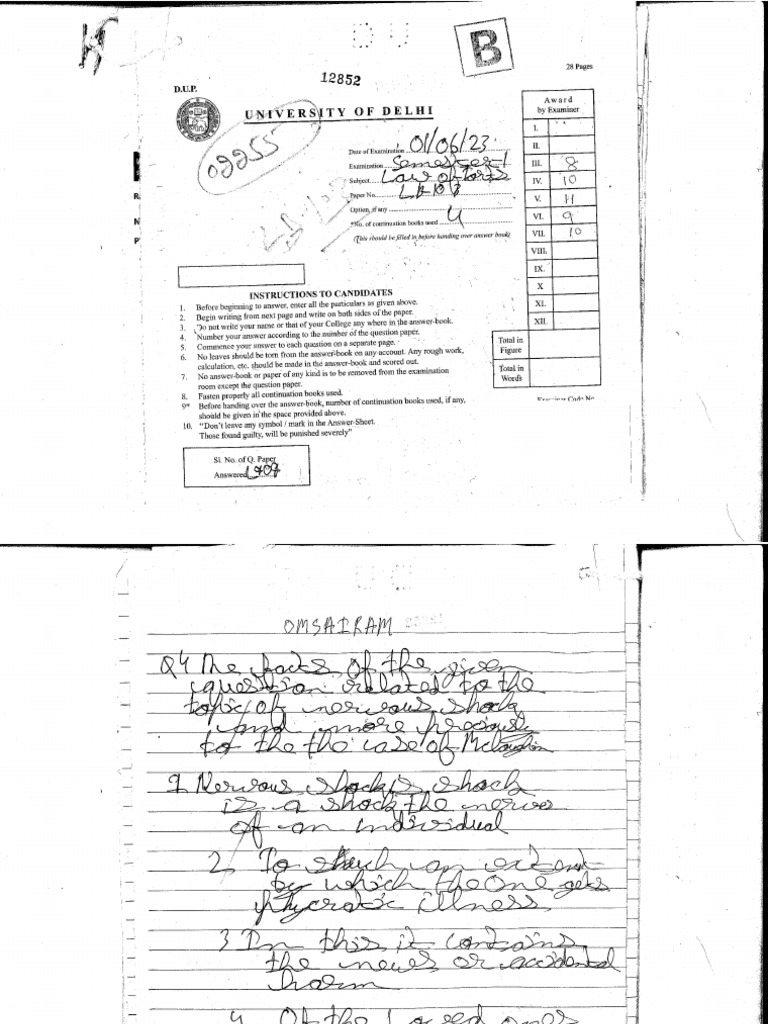 B
28 Pages
12852
D.U.P.
UNIVERSITY OF DELHI
02255
Date of Examination 01/06/23
Examination Semester I
Subject Law of Torts
Paper No.
Option, if any
*No. of continuation books used 4
(This should be filled in before handing over answer book)
Award
by Examiner
I.
II.
III. 8
IV. 10
V. 11
VI. 9
VII. 10
VIII.
IX.
X
XI.
XII.
Total in
Figure
Total in
Words
Examiner Code No
INSTRUCTIONS TO CANDIDATES
1. Before beginning to answer, enter all the particulars as given above.
2. Begin writing from next page and write on both sides of the paper.
3. Do not write your name or that of your College any where in the answer-book.
4. Number your answer according to the number of the question paper.
5. Commence your answer to each question on a separate page.
6. No leaves should be torn from the answer-book on any account. Any rough work,
calculation, etc. should be made in the answer-book and scored out.
7. No answer-book or paper of any kind is to be removed from the examination
room except the question paper.
8. Fasten properly all continuation books used.
9* Before handing over the answer-book, number of continuation books used, if any,
should be given in the space provided above.
10. "Don't leave any symbol / mark in the Answer-Sheet.
Those found guilty, will be punished severely"
Sl. No. of Q. Paper
Answered
OMSAIRAM
Q4 The facts of the given
question related to the
topic of nervous shock
and more precisely
to the the case of Mcloughlin
1 Nervous shock is shock
is a shock the nerves
of an individual
2 To such an extent
by which the one gets
illness
3 In this it contains
the news or accidental
harm
4 Of the loved ones